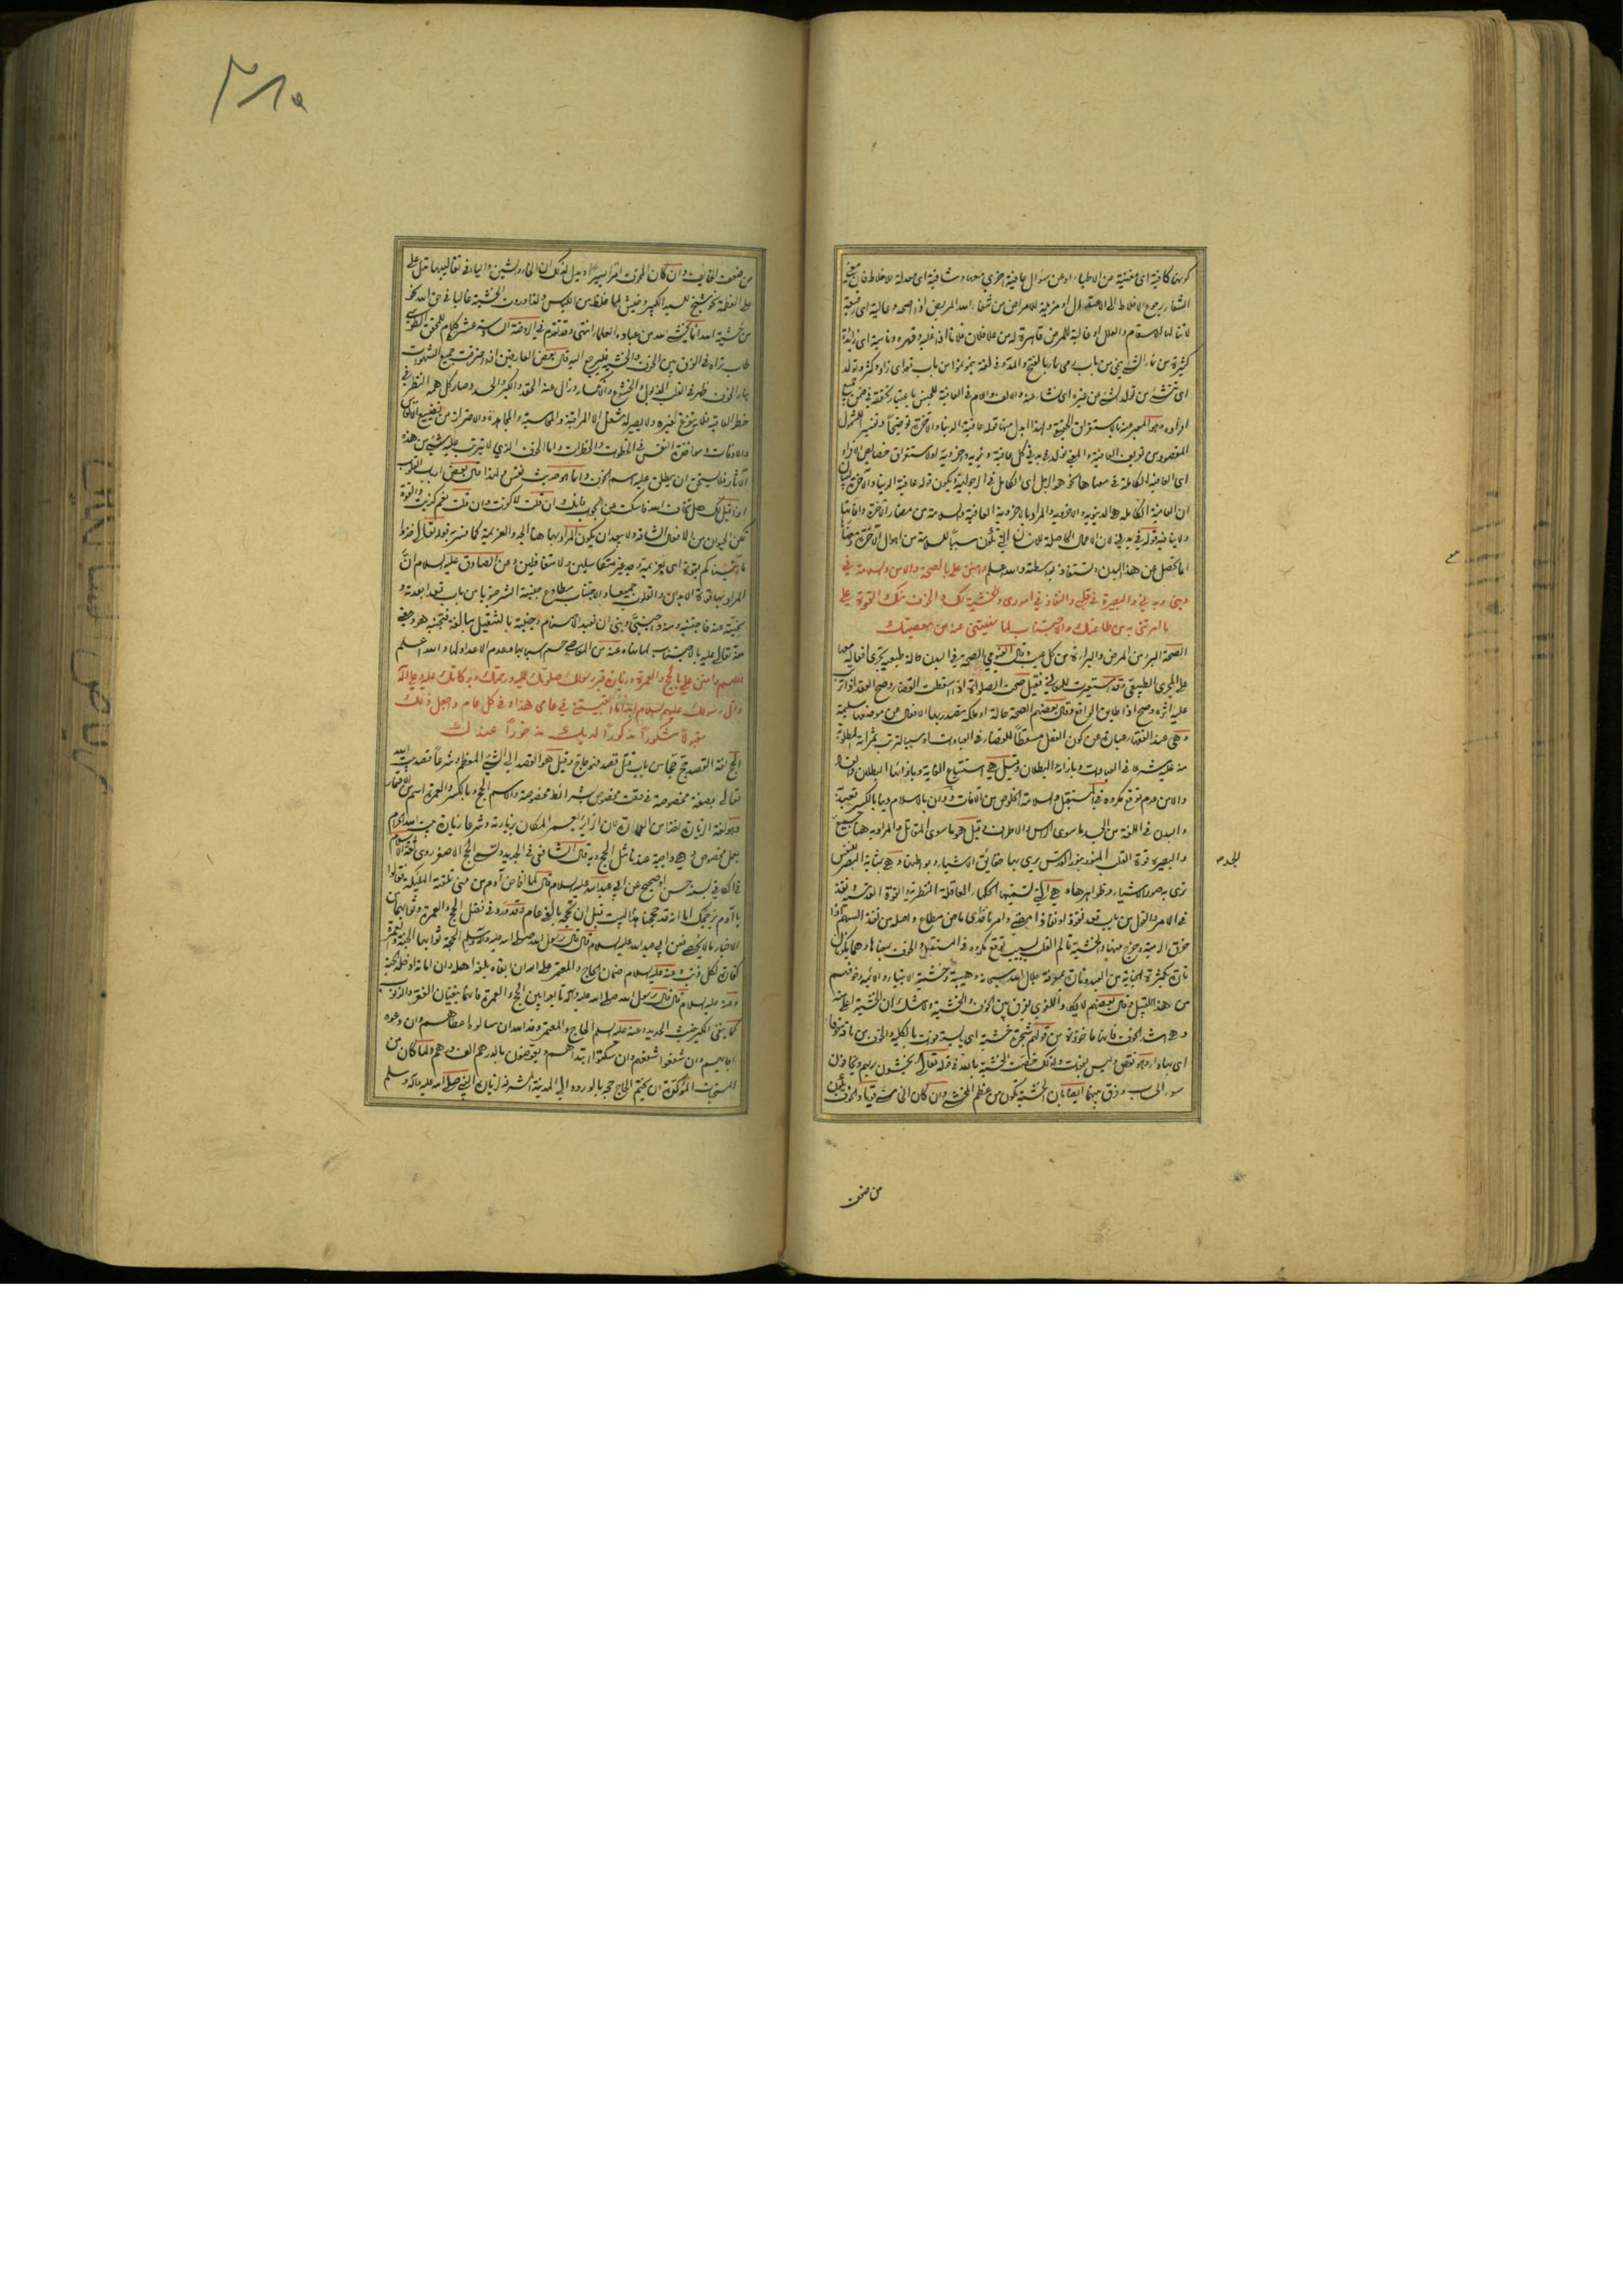 كونها كافية اى مغنية عن الاطباء او عن سؤال عافية اخرى معها وشافية اى معدلة للاخلاط فان معنى
الشفاء رجوع الاخلاط الى الاعتدال او مزيلة للامراض من شفاء الله المريض اذا اصحه وعالية اى رفيعة
لا تنالها الاسقام والعلل او غالبة للمرض قاهرة له من علا فلان فلانا اذا غلبه وقهره ونامية اى زائدة
كثيرة من نماء الشئ ينمى من باب رمى نماء بالفتح والمد وفى لغة ينمو نموا من باب قعد اى زاد وكثر وتولد
اى تنشئ من تولد الشئ عن غيره اى نشاء عنه والالف واللام فى العافية للجنس باعتبار تحققه فى ضمن جميع
افراده وهو المعبر عنه بالاستغراق
المقصود من تعريف العافية
اى العافية الكاملة فى معناها نحو هو الرجل اى الكامل فى الرجولية ويكون قوله عافية الدنيا والآخرة بيان
ان العافية الكاملة هى الدنيوية والاخروية والمراد بالاخروية العافية والسلامة من مضار الآخرة وآفاتها
ولا ينافيه قوله فى بدنى لان الاعمال الحاصلة للانسان التى تكون سببا للسلامة من اهوال الآخرة
انما تحصل من هذا البدن وتستفاد بواسطته والله اعلم وامنن على بالصحة والامن والسلامة فى
دينى وبدنى والبصيرة فى قلبى والنفاذ فى امورى والخشية لك والخوف منك والقوة على
ما امرتنى به من طاعتك والاجتناب لما نهيتنى عنه من معصيتك
الصحة البرء من المرض والبراءة من كل عيب وقال الفيومى الصحة فى البدن حالة طبيعية تجرى افعاله معها
على المجرى الطبيعى وقد استعيرت للمعانى فقيل صحت الصلوة اذا اسقطت القضاء وصح العقد اذا ترتب
عليه اثره وصح الخبر اذا طابق الواقع وقال بعضهم الصحة حالة او ملكة تصدر بها الافعال عن موضوعها سليمة
وهى عند الفقهاء عبارة عن كون الفعل مسقطا للقضاء فى العبادات او سببا لترتب ثمراته المطلوبة
منه عليه شرعا فى المعاملات وبازائه البطلان وقيل هى استتباع الغاية وبازائها البطلان والفساد
والامن عدم توقع مكروه فى المستقبل والسلامة الخلوص من الآفات ودان بالاسلام دينا بالكسر تعبد به
والبدن فى اللغة من الجسد ما سوى الراس والاطراف وقيل هو ما سوى المقاتل والمراد به هنا جميع
الجسد
والبصيرة قوة القلب المنور بنور القدس يرى بها حقائق الاشياء وبواطنها وهى بمثابة البصر للنفس
ترى به صور الاشياء وظواهرها وهى التى تسميها الحكماء العاقلة النظرية والقوة القدسية ونفذ
فى الامر والقول من باب قعد نفوذا ونفاذا مضى وامر نافذ اى ماض مطاع واصله من نفذ السهم اذا
خرق الرمية وخرج منها والخشية تالم القلب بسبب توقع مكروه فى المستقبل والخوف بمعناها وهما يكونان
تارة بكثرة الجناية من العبد وتارة بمعرفة جلال الله سبحانه وهيبته وخشية الانبياء والائمة وخوفهم
من هذا القبيل وقال بعضهم لا يكاد اللغوى يفرق بين الخوف والخشية ولا شك ان الخشية اعلى منه
وهى اشد الخوف فانها ماخوذة من قولهم شجرة خشية اى يابسة وهو فوت بالكلية والخوف من ناقة خوفاء
اى بها داء وهو نقص وليس بفوات ولذلك خصت الخشية بالله فى قوله تعالى يخشون ربهم ويخافون
سوء الحساب وفرق بينهما ايضا بان الخشية تكون من عظم المخشى وان كان الخاشى قويا والخوف يكون
من ضعف
٣١٥
من ضعف الخايف وان كان المخوف امرا يسيرا ويدل لذلك ان الخاء والشين والياء فى تقاليبها تدل على
على العظمة نحو شيخ للسيد الكبير وخيش لما غلظ من اللباس ولذا وردت الخشية غالبا فى حق الله نحو
من خشية الله انما يخشى الله من عباده العلماء انتهى وقد تقدم فى الروضة السادسة عشر كلام للمحقق الطوسى
طاب ثراه فى الفرق بين الخوف والخشية فليرجع اليه قال بعض العارفين اذا احترقت جميع الشهوات
بنار الخوف ظهر فى القلب الذبول والخشوع والانكسار وزال عنه الحقد والكبر والحسد وصار كل همه النظر فى
خطر العاقبة فلا يتفرغ لغيره ولا يصير له شغل الا المراقبة والمحاسبة والمجاهدة والاحتراز من تضييع الانفاس
والاوقات ومؤاخذة النفس فى الخطوات والخطرات واما الخوف الذى لا يترتب عليه شئ من هذه
الآثار فلا يستحق ان يطلق عليه اسم الخوف وانما هو حديث نفس ولهذا قال بعض ارباب القلوب
اذا قيل لك هل تخاف الله فاسكت عن الجواب فانك ان قلت لا كفرت وان قلت نعم كذبت والقوة
تمكن الحيوان من الافعال الشاقة ولا يبعد ان يكون المراد بها هنا الجد والعزيمة كما فسر به قوله تعالى خذوا
ما آتيناكم بقوة اى بعزيمة وجد غير متكاسلين ولا متغافلين وعن الصادق عليه السلام ان
المراد بها قوة الابدان والقلوب جميعا والاجتناب مطاوع جنبته الشر جنوبا من باب قعد ابعدته و
نحيته عنه فاجتنبه ومنه واجنبنى وبنى ان نعبد الاصنام وجنبته بالتثقيل مبالغة فتجنبه هو
منه تعالى عليه بالاجتناب لما نهاه عنه من المعاصى حسم اسبابها وعدم الاعداد لها والله اعلم
اللهم وامنن على بالحج والعمرة وزيارة قبر رسولك صلواتك عليه ورحمتك وبركاتك عليه وعلى آله
وآل رسولك عليهم السلام ابدا ما ابقيتنى فى عامى هذا وفى كل عام واجعل ذلك
مقبولا مشكورا مذكورا لديك مذخورا عندك
الحج لغة القصد حج حجا من باب قتل قصد فهو حاج وقيل هو القصد الى الشئ المعظم وشرعا قصد بيت الله
تعالى بصفة مخصوصة فى وقت مخصوص بشرائط مخصوصة والاسم الحج بالكسر والعمرة اسم من الاعتمار
وهو لغة الزيارة اخذا من العمارة لان الزائر يعمر المكان بزيارته وشرعا زيارة بيت الله الحرام
بعمل مخصوص وهى واجبة عندنا مثل الحج وبه قال الشافعى فى الجديد وتسمى الحج الاصغر روى ثقة الاسلام
فى الكافى بسند حسن او صحيح عن ابى عبد الله عليه السلام قال لما افاض آدم من منى تلقته الملئكة فقالوا
يا آدم بر حجك اما انه قد حججنا هذا البيت قبل ان تحجه بالفى عام وقد ورد فى فضل الحج والعمرة وثوابهما من
الاخبار ما لا يحصى فعن ابى عبد الله عليه السلام قال قال رسول الله صلى الله عليه وآله وسلم الحجة ثوابها الجنة والعمرة
كفارة لكل ذنب وعنه عليه السلام ضمان الحاج والمعتمر على الله ان ابقاه بلغه اهله وان اماته ادخله الجنة
وعنه عليه السلام قال قال رسول الله صلى الله عليه وآله تابعوا بين الحج والعمرة فانهما ينفيان الفقر والذنوب
كما ينفى الكير خبث الحديد وعنه عليه السلام الحاج والمعتمر وفد الله ان سالوه اعطاهم وان دعوه
اجابهم وان شفعوا شفعهم وان سكتوا ابتداهم ويعوضون بالدرهم الف درهم ولما كان من
المستحبات المؤكدة ان يختم الحاج حجه بالورود الى المدينة المشرفة لزيارة النبى صلى الله عليه وآله وسلم